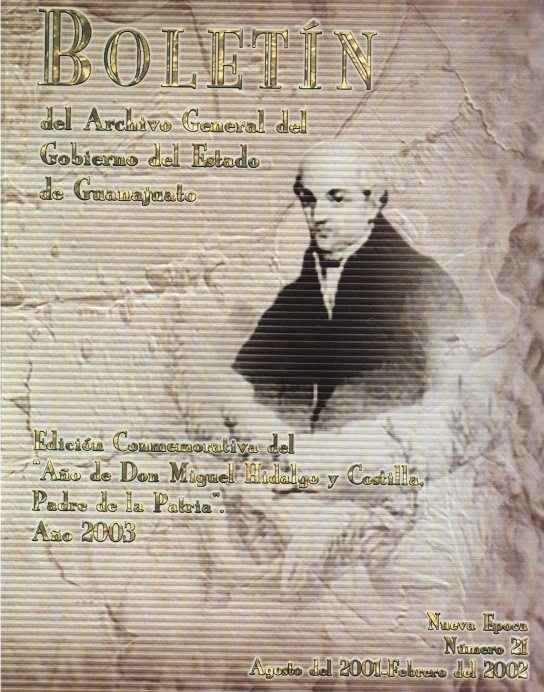 BOLETÍN
del Archivo General del
Gobierno del Estado
de Guanajuato
Edición Conmemorativa del
"Año de Don Miguel Hidalgo y Costilla,
Padre de la Patria".
Año 2003
Nueva Epoca
Número 21
Agosto del 2001-Febrero del 2002